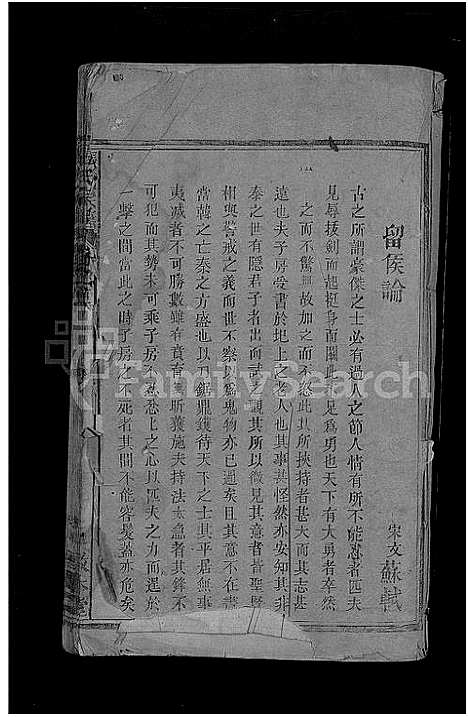 留侯論
宋文 蘇軾
古之所謂豪傑之士必有過人之節人情有所不能忍者匹夫
見辱拔劍而起挺身而鬬此不足爲勇也天下有大勇者卒然
之而不驚無故加之而不怒此其所挾持者甚大而其志甚
遠也夫子房受書於圯上之老人也其事甚怪然亦安知其非
秦之世有隱君子者出而試之觀其所以微見其意者皆聖賢
相與警戒之義而世不察以爲鬼物亦已過矣且其意不在書
當韓之亡秦之方盛也以刀鋸鼎鑊待天下之士其平居無事
夷滅者不可勝數雖有賁育無所獲施夫持法太急者其鋒不
可犯而其勢未可乘子房不忍忿忿之心以匹夫之力而逞於
一擊之間當此之時子房之不死者其間不能容髮蓋亦危矣
張氏
FamilySearch